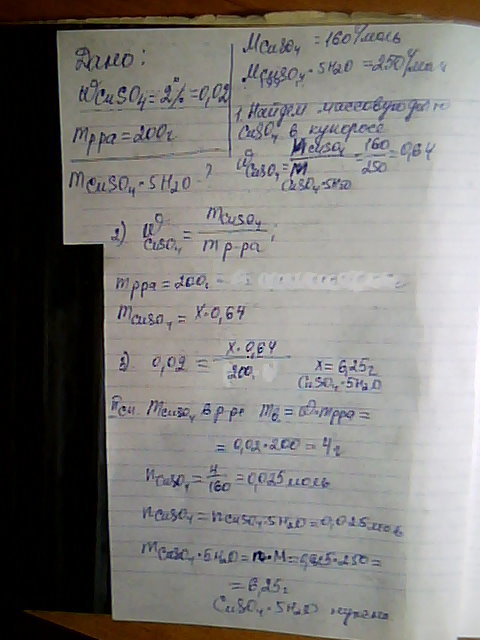 Дано:
ωCuSO4 = 2% = 0,02
mрра = 200г
mCuSO4·5H2O - ?
MCuSO4 = 160г/моль
MCuSO4·5H2O = 250г/моль
1. Найдем массовую долю
CuSO4 в купоросе
ωCuSO4 = MCuSO4 / MCuSO4·5H2O = 160/250 = 0,64
2) ωCuSO4 = mCuSO4 / mр-ра ;
mрра = 200г
mCuSO4 = x·0,64
3) 0,02 = x·0,64 / 200 x = 6,25г
CuSO4·5H2O
IIсп. mCuSO4 в р-ре mв = ω·mрра =
= 0,02·200 = 4г
nCuSO4 = 4/160 = 0,025 моль
nCuSO4 = nCuSO4·5H2O = 0,025 моль
mCuSO4·5H2O = n·M = 0,025·250 =
= 6,25г
CuSO4·5H2O нужно